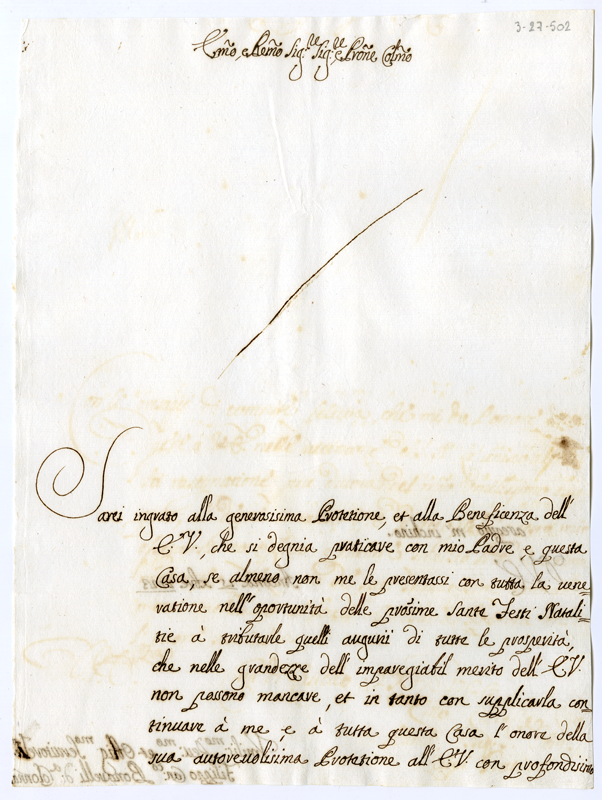 3-27-502
Em̃o, e Rem̃o Sig.re Sig.re, e Pron̄e Col̃mo
Sarei ingrato alla generosisima Protetione, et alla Beneficenza dell'
E.V., che si degnia praticare con mio Padre e questa
Casa, se almeno non me le presentassi con tutta la vene=
ratione nell'oportunità delle prosime Sante Festi Natali=
tie à tributarle quelli augurii di tutte le prosperità,
che nelle grandezze dell' imparegiabil merito dell' E.V.
non possono mancare, et in tanto con supplicarla con=
tinuare à me e à tutta questa Casa l'onore della
sua autorevolisima Protetione all' E.V. con profondisimo